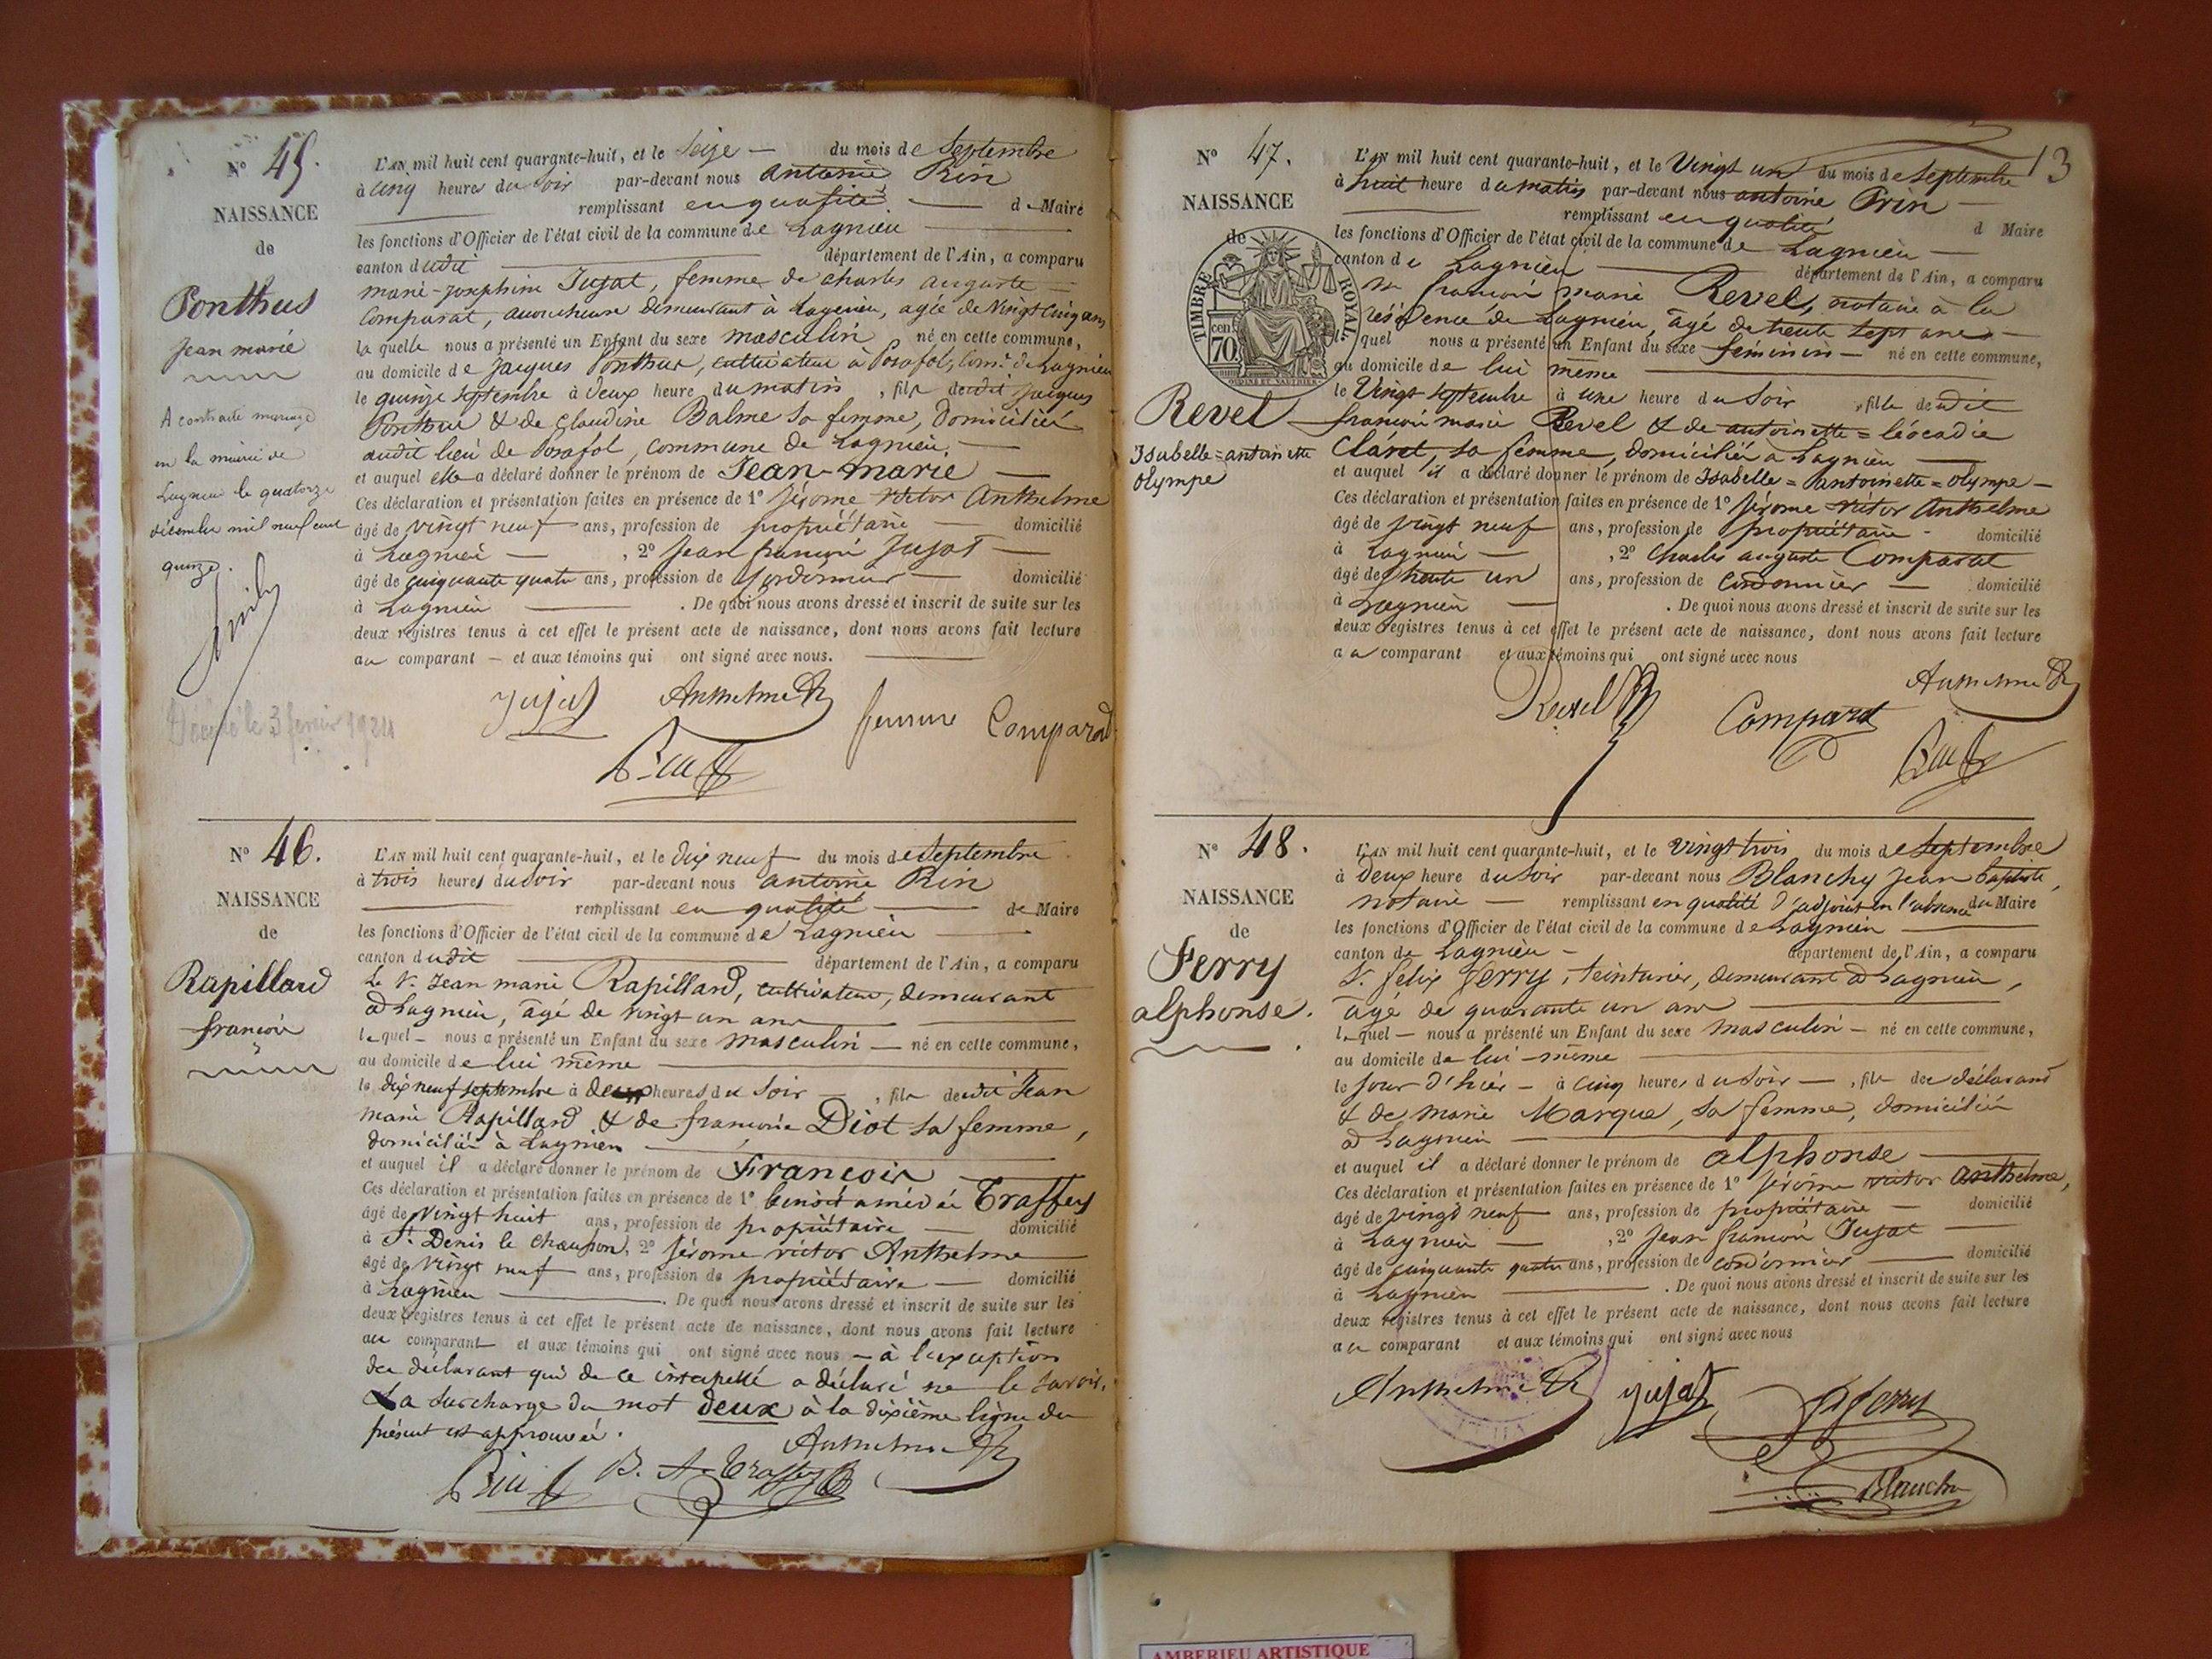 N° 45.
NAISSANCE
de
Ponthus
Jean marie
A contracté mariage
en la mairie de
Lagnieu le quatorze
décembre mil neuf cent
quinze.
Décédé le 3 février 1924
L'AN mil huit cent quarante-huit, et le Seize — du mois de Septembre
à cinq heures du soir par-devant nous Antoine Prin
remplissant en qualité — de Maire
les fonctions d'Officier de l'état civil de la commune de Lagnieu
canton dudit département de l'Ain, a comparu
marie-josephine Jujat, femme de charles auguste
Comparat, accoucheuse demeurant à Lagnieu, agée de vingt cinq ans
la quelle nous a présenté un Enfant du sexe masculin né en cette commune,
au domicile de jacques Ponthus, cultivateur à Posafol, com.ne de Lagnieu
le quinze septembre à deux heure du matin, fils dudit jacques
Ponthus & de claudine Balme sa femme, domiciliés
audit lieu de Posafol, commune de Lagnieu.
et auquel elle a déclaré donner le prénom de Jean-marie
Ces déclaration et présentation faites en présence de 1° Jérome victor Anthelme
âgé de vingt neuf ans, profession de propriétaire domicilié
à Lagnieu, 2° Jean françois Jujat
âgé de cinquante quatre ans, profession de domicilié
à Lagnieu. De quoi nous avons dressé et inscrit de suite sur les
deux registres tenus à cet effet le présent acte de naissance, dont nous avons fait lecture
au comparant — et aux témoins qui ont signé avec nous.
Jujat Anthelme femme Comparat
Prin
N° 46.
NAISSANCE
de
Rapillard
françois
L'AN mil huit cent quarante-huit, et le dix neuf du mois de septembre
à trois heures du soir par-devant nous antoine Prin
remplissant en qualité de Maire
les fonctions d'Officier de l'état civil de la commune de Lagnieu
canton dudit département de l'Ain, a comparu
Le S. Jean marie Rapillard, cultivateur, demeurant
à Lagnieu, âgé de vingt un ans
lequel — nous a présenté un Enfant du sexe masculin — né en cette commune,
au domicile de lui même
le dix neuf septembre à deux heures du soir —, fils dudit Jean
marie Rapillard & de françoise Diot sa femme,
domiciliés à Lagnieu
et auquel il a déclaré donner le prénom de François
Ces déclaration et présentation faites en présence de 1° benoît amédée Traffey
âgé de vingt huit ans, profession de propriétaire — domicilié
à St Denis le Chausson, 2° Jérome victor Anthelme
âgé de vingt neuf ans, profession de propriétaire — domicilié
à Lagnieu. De quoi nous avons dressé et inscrit de suite sur les
deux registres tenus à cet effet le présent acte de naissance, dont nous avons fait lecture
au comparant et aux témoins qui ont signé avec nous — à l'exception
du déclarant qui de ce interpellé a déclaré ne le savoir.
La surcharge du mot deux à la dixième ligne du
présent est approuvée.
Anthelme
Prin B. A. Traffey
13
N° 47.
NAISSANCE
de
TIMBRE ROYAL
cent 70
Revel
Isabelle=antoinette
olympe
L'AN mil huit cent quarante-huit, et le Vingt un du mois de septembre
à huit heure du matin par-devant nous antoine Prin
remplissant en qualité d Maire
les fonctions d'Officier de l'état civil de la commune de Lagnieu
canton de Lagnieu département de l'Ain, a comparu
m. françois marie Revel, notaire à la
résidence de Lagnieu, âgé de trente sept ans
quel nous a présenté un Enfant du sexe féminin — né en cette commune,
au domicile de lui même
le Vingt septembre à une heure du soir, fille dudit
françois marie Revel & de antoinette=léocadie
Claret, sa femme, domiciliés à Lagnieu
et auquel il a déclaré donner le prénom de Isabelle=antoinette=olympe
Ces déclaration et présentation faites en présence de 1° Jérome victor Anthelme
âgé de vingt neuf ans, profession de propriétaire domicilié
à Lagnieu, 2° Charles auguste Comparat
âgé de trente un ans, profession de cordonnier domicilié
à Lagnieu. De quoi nous avons dressé et inscrit de suite sur les
deux registres tenus à cet effet le présent acte de naissance, dont nous avons fait lecture
au comparant et aux témoins qui ont signé avec nous
Revel Comparat Anthelme
Prin
N° 48.
NAISSANCE
de
Ferry
alphonse.
L'AN mil huit cent quarante-huit, et le vingt trois du mois de Septembre
à deux heure du soir par-devant nous Blanchy Jean baptiste,
notaire — remplissant en qualité d'adjoint en l'absence du Maire
les fonctions d'Officier de l'état civil de la commune de Lagnieu
canton de Lagnieu département de l'Ain, a comparu
S. felix Ferry, teinturier, demeurant à Lagnieu,
âgé de quarante un ans
lequel — nous a présenté un Enfant du sexe masculin — né en cette commune,
au domicile de lui-même
le jour d'hier — à cinq heures du soir —, fils du déclarant
& de marie Marque, sa femme, domiciliés
à Lagnieu
et auquel il a déclaré donner le prénom de alphonse
Ces déclaration et présentation faites en présence de 1° Jérome victor anthelme,
âgé de vingt neuf ans, profession de propriétaire — domicilié
à Lagnieu, 2° Jean françois Jujat
âgé de cinquante quatre ans, profession de cordonnier domicilié
à Lagnieu. De quoi nous avons dressé et inscrit de suite sur les
deux registres tenus à cet effet le présent acte de naissance, dont nous avons fait lecture
au comparant et aux témoins qui ont signé avec nous
Anthelme Jujat Ferry
Blanchy
AMBERIEU ARTISTIQUE